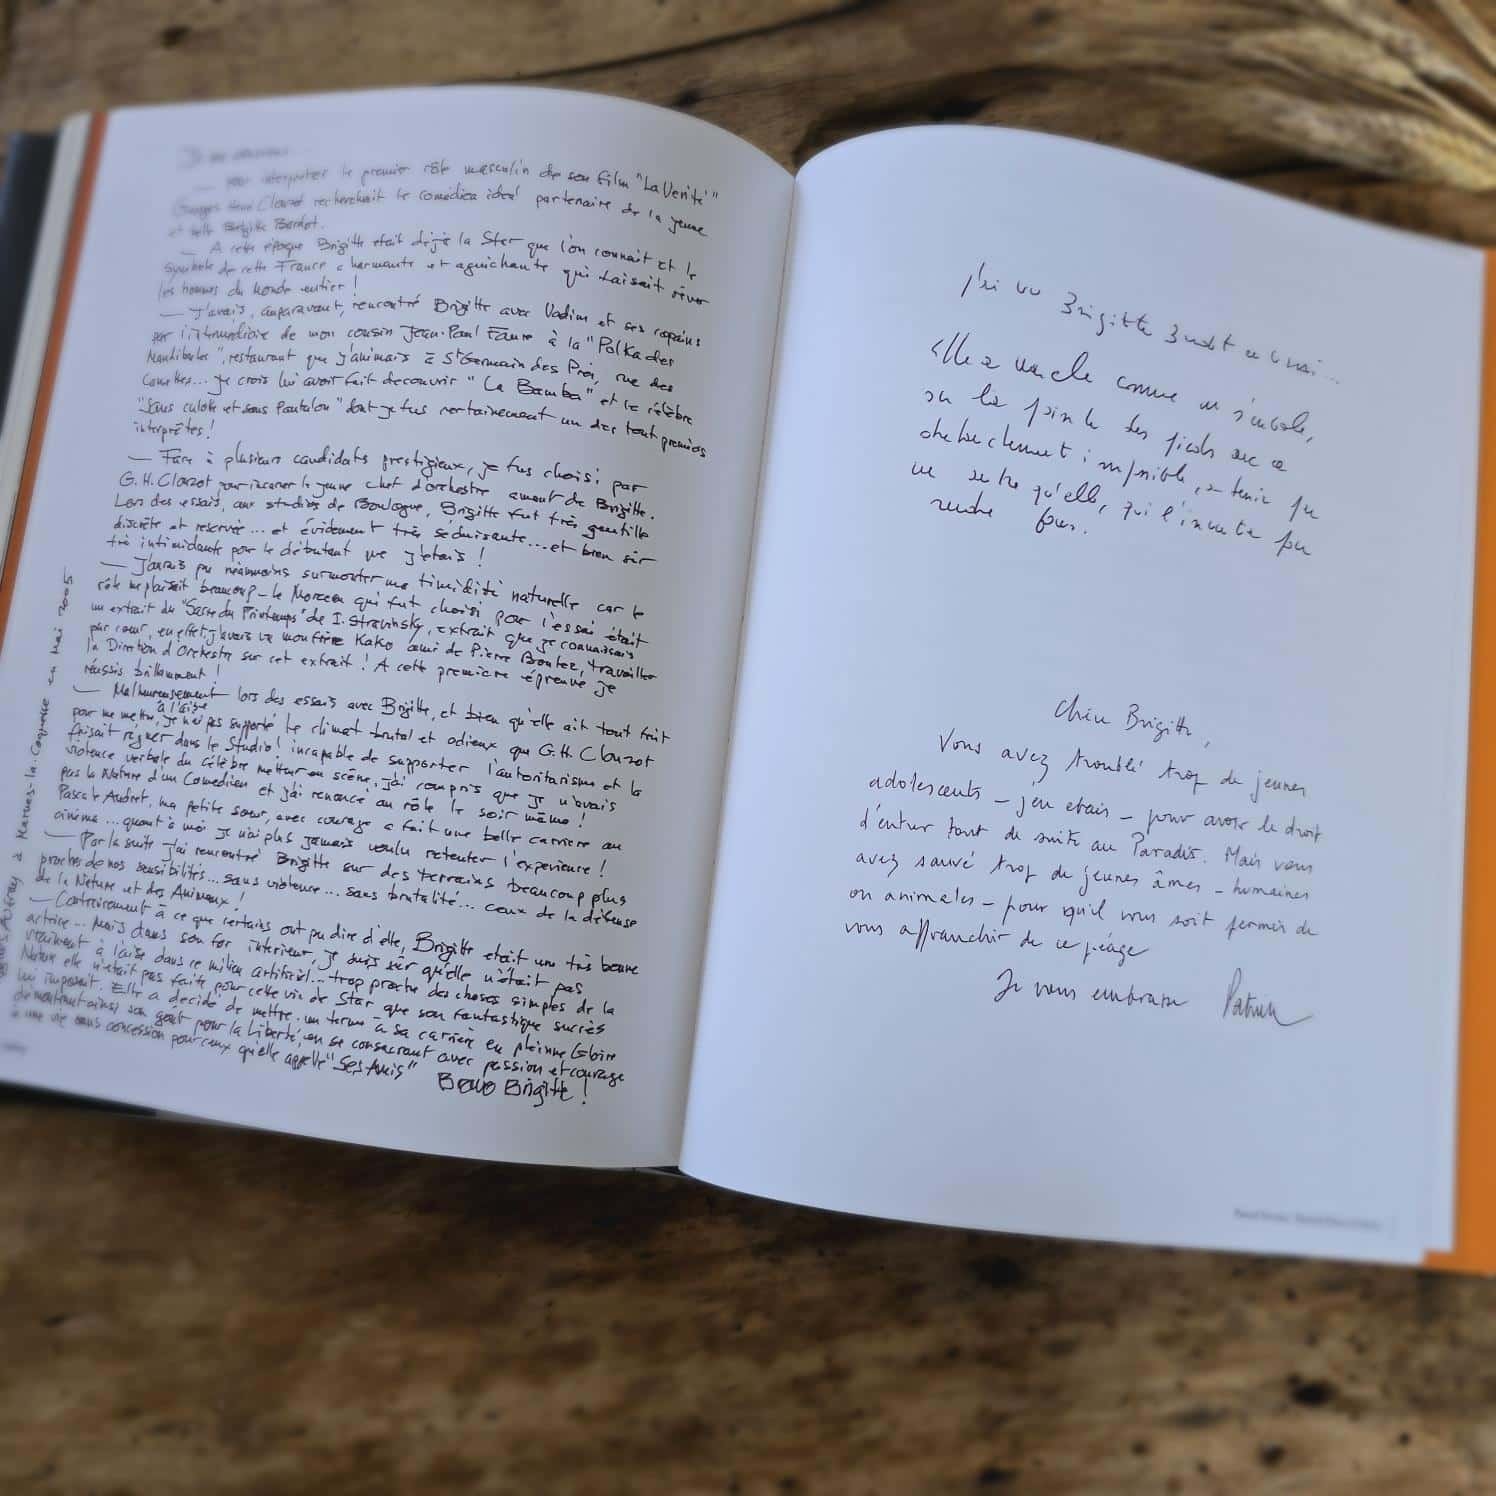 Je me souviens...
— Pour interpréter le premier rôle masculin de son film "La Verité"
Georges Henri Clouzot recherchait le comédien idéal partenaire de la jeune
et belle Brigitte Bardot.
— A cette époque Brigitte était déjà la Star que l'on connait et le
symbole de cette France charmante et aguichante qui faisait rêver
les hommes du Monde entier !
— J'avais, auparavant, rencontré Brigitte avec Vadim et ses copains
par l'intermédiaire de mon cousin Jean-Paul Faure à la "Polka des
Mandibules", restaurant que j'animais à St Germain des Prés, rue des
Canettes... je crois lui avoir fait découvrir "La Bamba" et le célèbre
"Sans culotte et sans Pantalon" dont je fus certainement un des tout premiers
interprètes !
— Face à plusieurs candidats prestigieux, je fus choisi par
G.H. Clouzot pour incarner le jeune chef d'orchestre amant de Brigitte.
Lors des essais, aux studios de Boulogne, Brigitte fut très gentille
discrète et reservée... et évidement très séduisante... et bien sûr
très intimidante pour le débutant que j'étais !
— J'aurais pu néanmoins surmonter ma timidité naturelle car le
rôle me plaisait beaucoup - le Morceau qui fut choisi pour l'essai était
un extrait du "Sacre du Printemps" de I. Stravinsky, extrait que je connaissais
par cœur, en effet, j'avais vu mon frère Kako ami de Pierre Boulez, travailler
la Direction d'Orchestre sur cet extrait ! A cette première épreuve je
réussis brillamment !
— Malheureusement lors des essais avec Brigitte, et bien qu'elle ait tout fait
pour me mettre à l'aise, je n'ai pas supporté le climat brutal et odieux que G.H. Clouzot
faisait régner dans le Studio ! incapable de supporter l'autoritarisme et la
violence verbale du célèbre metteur en scène, j'ai compris que je n'avais
pas la Nature d'un Comedien et j'ai renoncé au rôle le soir même !
Pascale Audret, ma petite sœur, avec courage a fait une belle carriere au
cinéma... quant à moi je n'ai plus jamais voulu retenter l'experience !
— Par la suite j'ai rencontré Brigitte sur des terrains beaucoup plus
proches de nos sensibilités... sans violence... sans brutalité... ceux de la défense
de la Nature et des Animaux !
— Contrairement à ce que certains ont pu dire d'elle, Brigitte etait une très bonne
actrice... Mais dans son for interieur, je suis sûr qu'elle n'était pas
vraiment à l'aise dans ce milieu artificiel... trop proche des choses simples de la
Nature elle n'était pas faite pour cette vie de Star que son fantastique succès
lui imposait. Elle a décidé de mettre un terme à sa carrière en pleine Gloire
démontrant ainsi son goût pour la Liberté, en se consacrant avec passion et courage
à une vie sans concession pour ceux qu'elle appelle "Ses Amis"
Bravo Brigitte !
Hugues Aufray à Marnes-la-Coquette Mai 2005
J'ai vu Brigitte Bardot en vrai...
Elle a marché comme on s'envole,
sur la pointe des pieds avec ce
déhanchement impossible à tenir par
un autre qu'elle, qui l'inventa pour
rendre fou.
Chère Brigitte,
Vous avez troublé trop de jeunes
adolescents – j'en étais – pour avoir le droit
d'entrer tout de suite au Paradis. Mais vous
avez sauvé trop de jeunes âmes – humaines
ou animales – pour qu'il vous soit permis de
vous affranchir de ce péage
Je vous embrasse Patrick